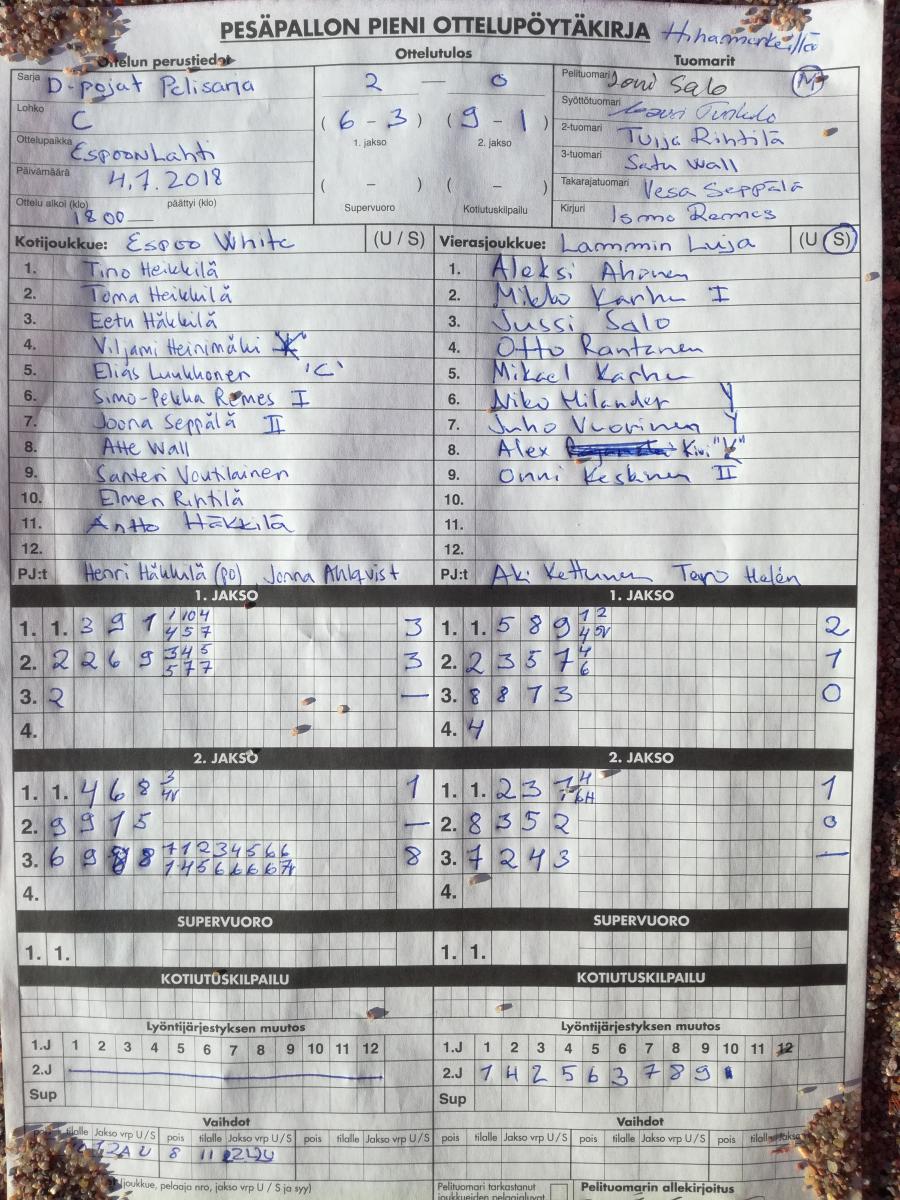 PESÄPALLON PIENI OTTELUPÖYTÄKIRJA
Ottelun perustiedot
Ottelutulos
Tuomarit
Sarja D-pojat Pelisarja
Lohko C
Ottelupaikka Espoonlahti
Päivämäärä 4.7.2018
Ottelu alkoi (klo) 1800 päättyi (klo)
2 — 0
( 6 - 3 ) ( 9 - 1 )
1. jakso 2. jakso
( - ) ( - )
Supervuoro Kotiutuskilpailu
Pelituomari Joni Salo
Syöttötuomari
2-tuomari Tuija Rihtilä
3-tuomari Satu Wall
Takarajatuomari Vesa Seppälä
Kirjuri Ismo Remes
Kotijoukkue: Espoo White (U / S)
1. Tino Heikkilä
2. Toma Heikkilä
3. Eetu Häkkilä
4. Viljami Heinimäki
5. Elias Luukkonen 'C'
6. Simo-Pekka Remes I
7. Joona Seppälä II
8. Atte Wall
9. Santeri Voutilainen
10. Elmeri Rihtilä
11. Antto Häkkilä
12.
PJ:t Henri Häkkilä (po), Jonna Ahlqvist
Vierasjoukkue: Lammin Luja (U / S)
1. Aleksi Ahonen
2. Mikko Karhu I
3. Jussi Salo
4. Otto Rantanen
5. Mikael Karhu
6. Niko Milander Y
7. Juho Vuorinen Y
8. Alex Kivi "K"
9. Onni Keskinen II
10.
11.
12.
PJ:t Aki Kettunen Tero Helén
1. JAKSO
1. 1. 3 9 1 1 10 4 3
4 5 7
2. 2 2 6 9 3 4 5 3
5 7 7
3. 2 —
4.
1. JAKSO
1. 1. 5 8 9 1 2 2
2. 2 3 5 7 4 1
6
3. 8 8 1 3 0
4. 4
2. JAKSO
1. 1. 4 6 8 3 1
2. 9 9 1 5 —
3. 6 9 8 7 1 2 3 4 5 6 6 8
4.
2. JAKSO
1. 1. 2 3 4 1
2. 8 3 5 2 0
3. 7 2 4 3 —
4.
SUPERVUORO
1. 1.
SUPERVUORO
1. 1.
KOTIUTUSKILPAILU
KOTIUTUSKILPAILU
Lyöntijärjestyksen muutos
1.J 1 2 3 4 5 6 7 8 9 10 11 12
2.J
Sup
Lyöntijärjestyksen muutos
1.J 1 2 3 4 5 6 7 8 9 10 11 12
2.J 1 4 2 5 6 3 7 8 9
Sup
Vaihdot
tilalle Jakso vrp U / S pois tilalle Jakso vrp U / S pois tilalle Jakso vrp U / S
8 11
Vaihdot
pois tilalle Jakso vrp U / S pois tilalle Jakso vrp U / S pois tilalle Jakso
(joukkue, pelaaja nro, jakso vrp U / S ja syy)
Pelituomari tarkastanut
joukkueiden pelaajaluvat
Pelituomarin allekirjoitus